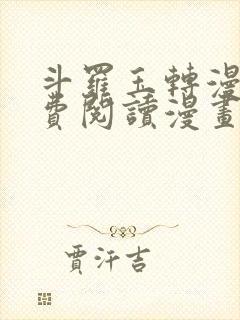 斗羅玉轉漫
費閱讀漫畫
賈汗吉